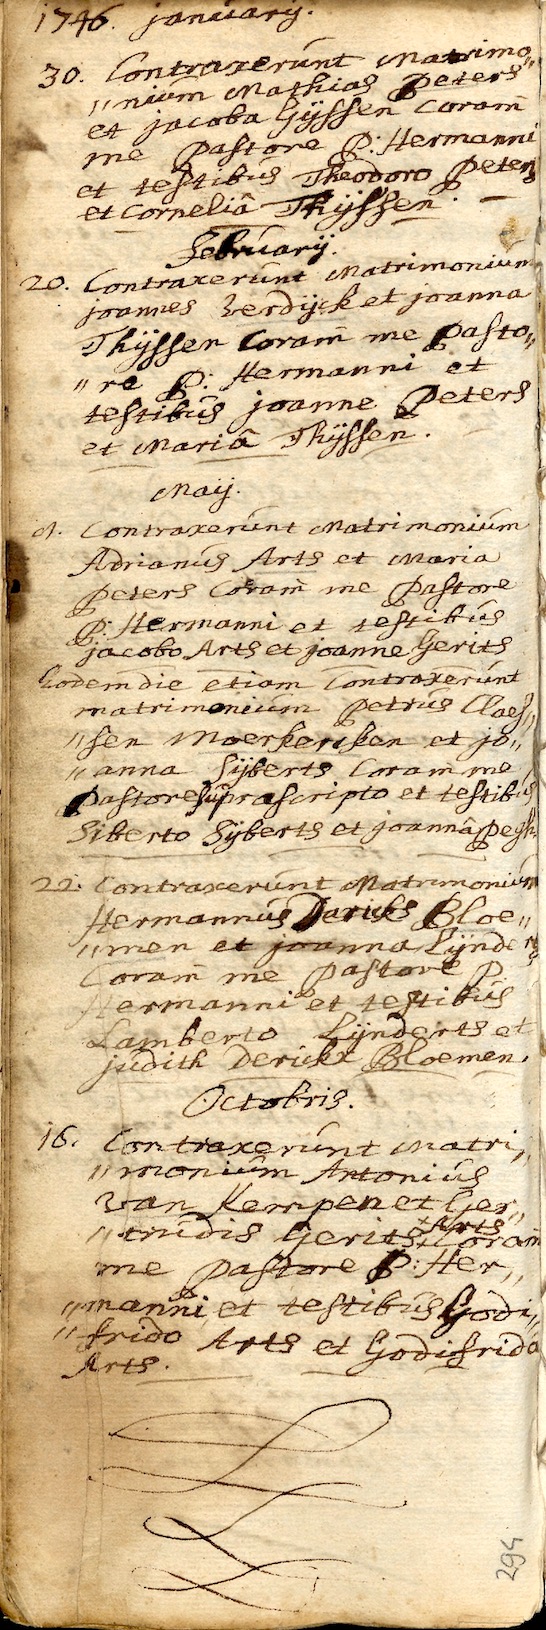 1746. january.
30. Contraxerunt Matrimo„
„nium Mathias Peters
et jacoba Gijssen Coram
me Pastore P: Hermanni
et testibus Theodoro Peters
et Corneliâ Thijssen. —
February.
20. Contraxerunt Matrimonium
joannes Verdijck et joanna
Thijssen Coram me Pasto„
„re P: Hermanni et
testibus joanne Peters
et Mariâ Thijssen.
Maij.
1. Contraxerunt Matrimonium
Adrianus Arts et Maria
Peters Coram me Pastore
P: Hermanni et testibus
jacobo Arts et joanne Gerits
Eodem die etiam Contraxerunt
matrimonium Petrus Claes„
„sen Moerkerken et jo„
„anna Sijberts Coram me
Pastore suprascripto et testibus
Siberto Sijberts et joannâ
22. Contraxerunt Matrimonium
Hermannus Daricks Bloe„
„men et joanna Lijnderts
Coram me Pastore P.
Hermanni et testibus
Lamberto Lijnderts et
judith Derickx Bloemen.
Octobris.
16. Contraxerunt Matri„
„monium Antonius
van Kempen et Ger„
„trudis Gerits Arts Coram
me Pastore P: Her„
„manni et testibus Godi„
„frido Arts et Godifrida
Arts.
294